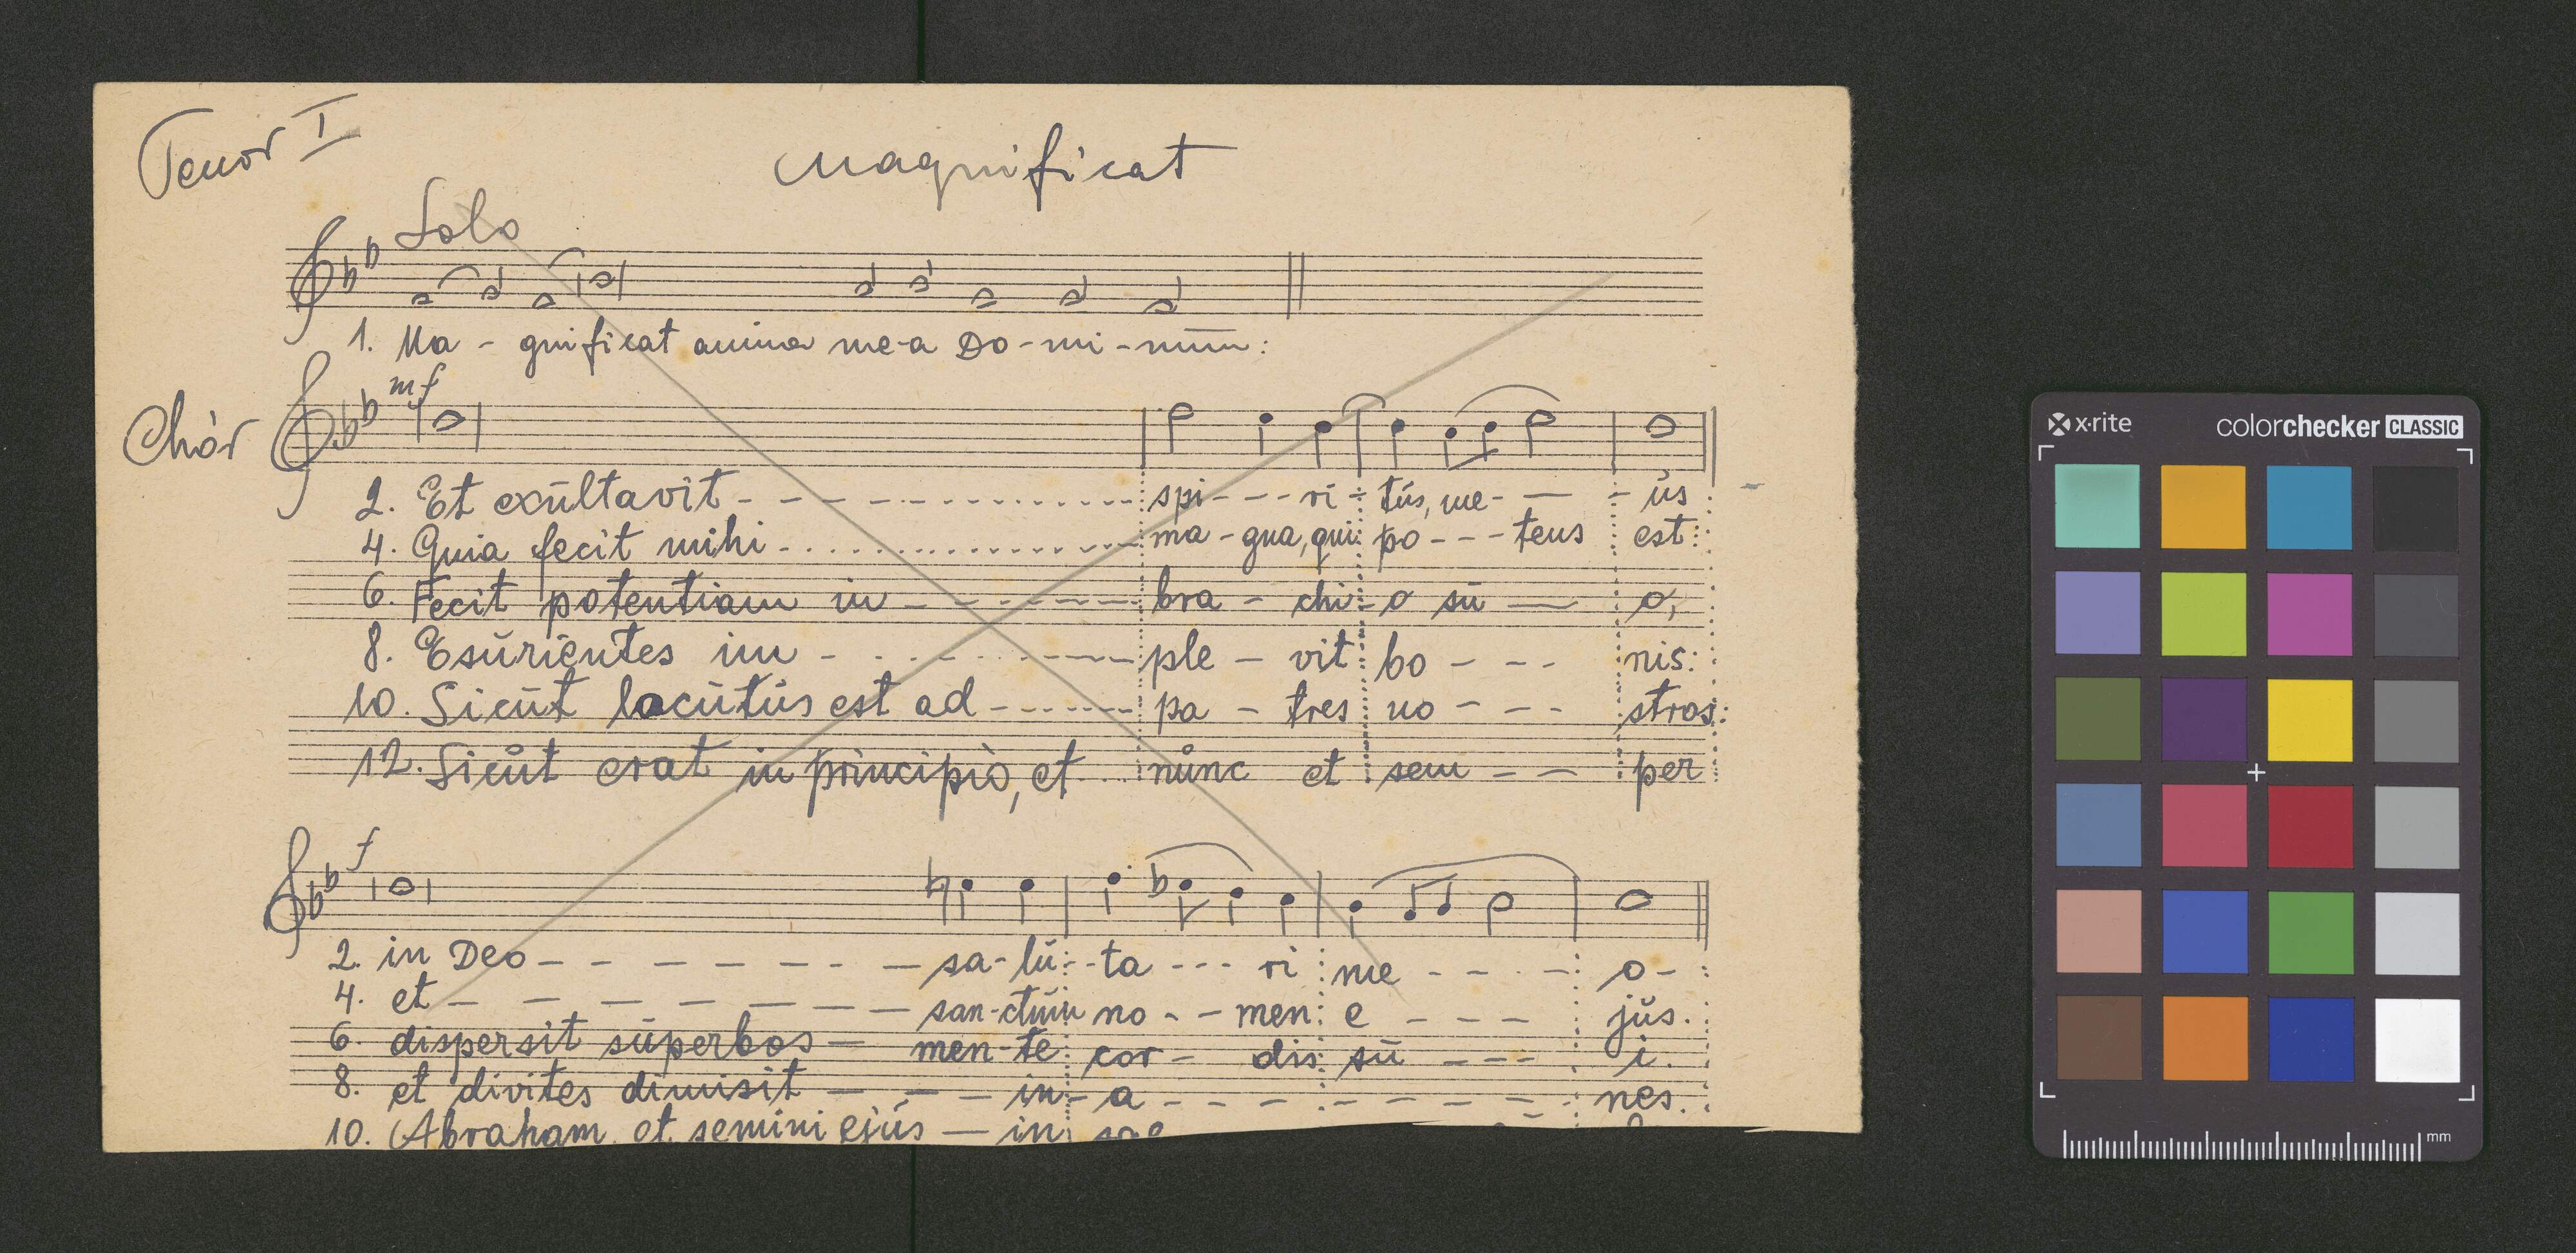 Tenor I
Magnificat
Solo
1. Ma - gnificat anima me-a Do-mi-num:
mf
Chór
2. Et exŭltavit - - - - spi - - - ri - tŭs, me - - - ŭs
4. Quia fecit mihi - . . . . . ma - gna, qui po - - - tens est:
6. Fecit potentiam in - - - - bra - chi - o sŭ - o,
8. Esŭriéntes im - - - - ple - vit bo - - - nis:
10. Sicŭt locŭtŭs est ad - - - - pa - tres no - - - stros:
12. Sicŭt erat in principio, et . . . nŭnc et sem - - per
f
2. in Deo - - - - - - - sa-lŭ - ta - - - ri me - - - - o -
4. et - - - - - - - san-ctŭm no - - men e - - - jŭs.
6. dispersit sŭperbos - men-te cor - dis sŭ - - - i.
8. et divites dimisit - - - in - a - - - - - - - - nes.
10. Abraham et semini ejŭs - in sae